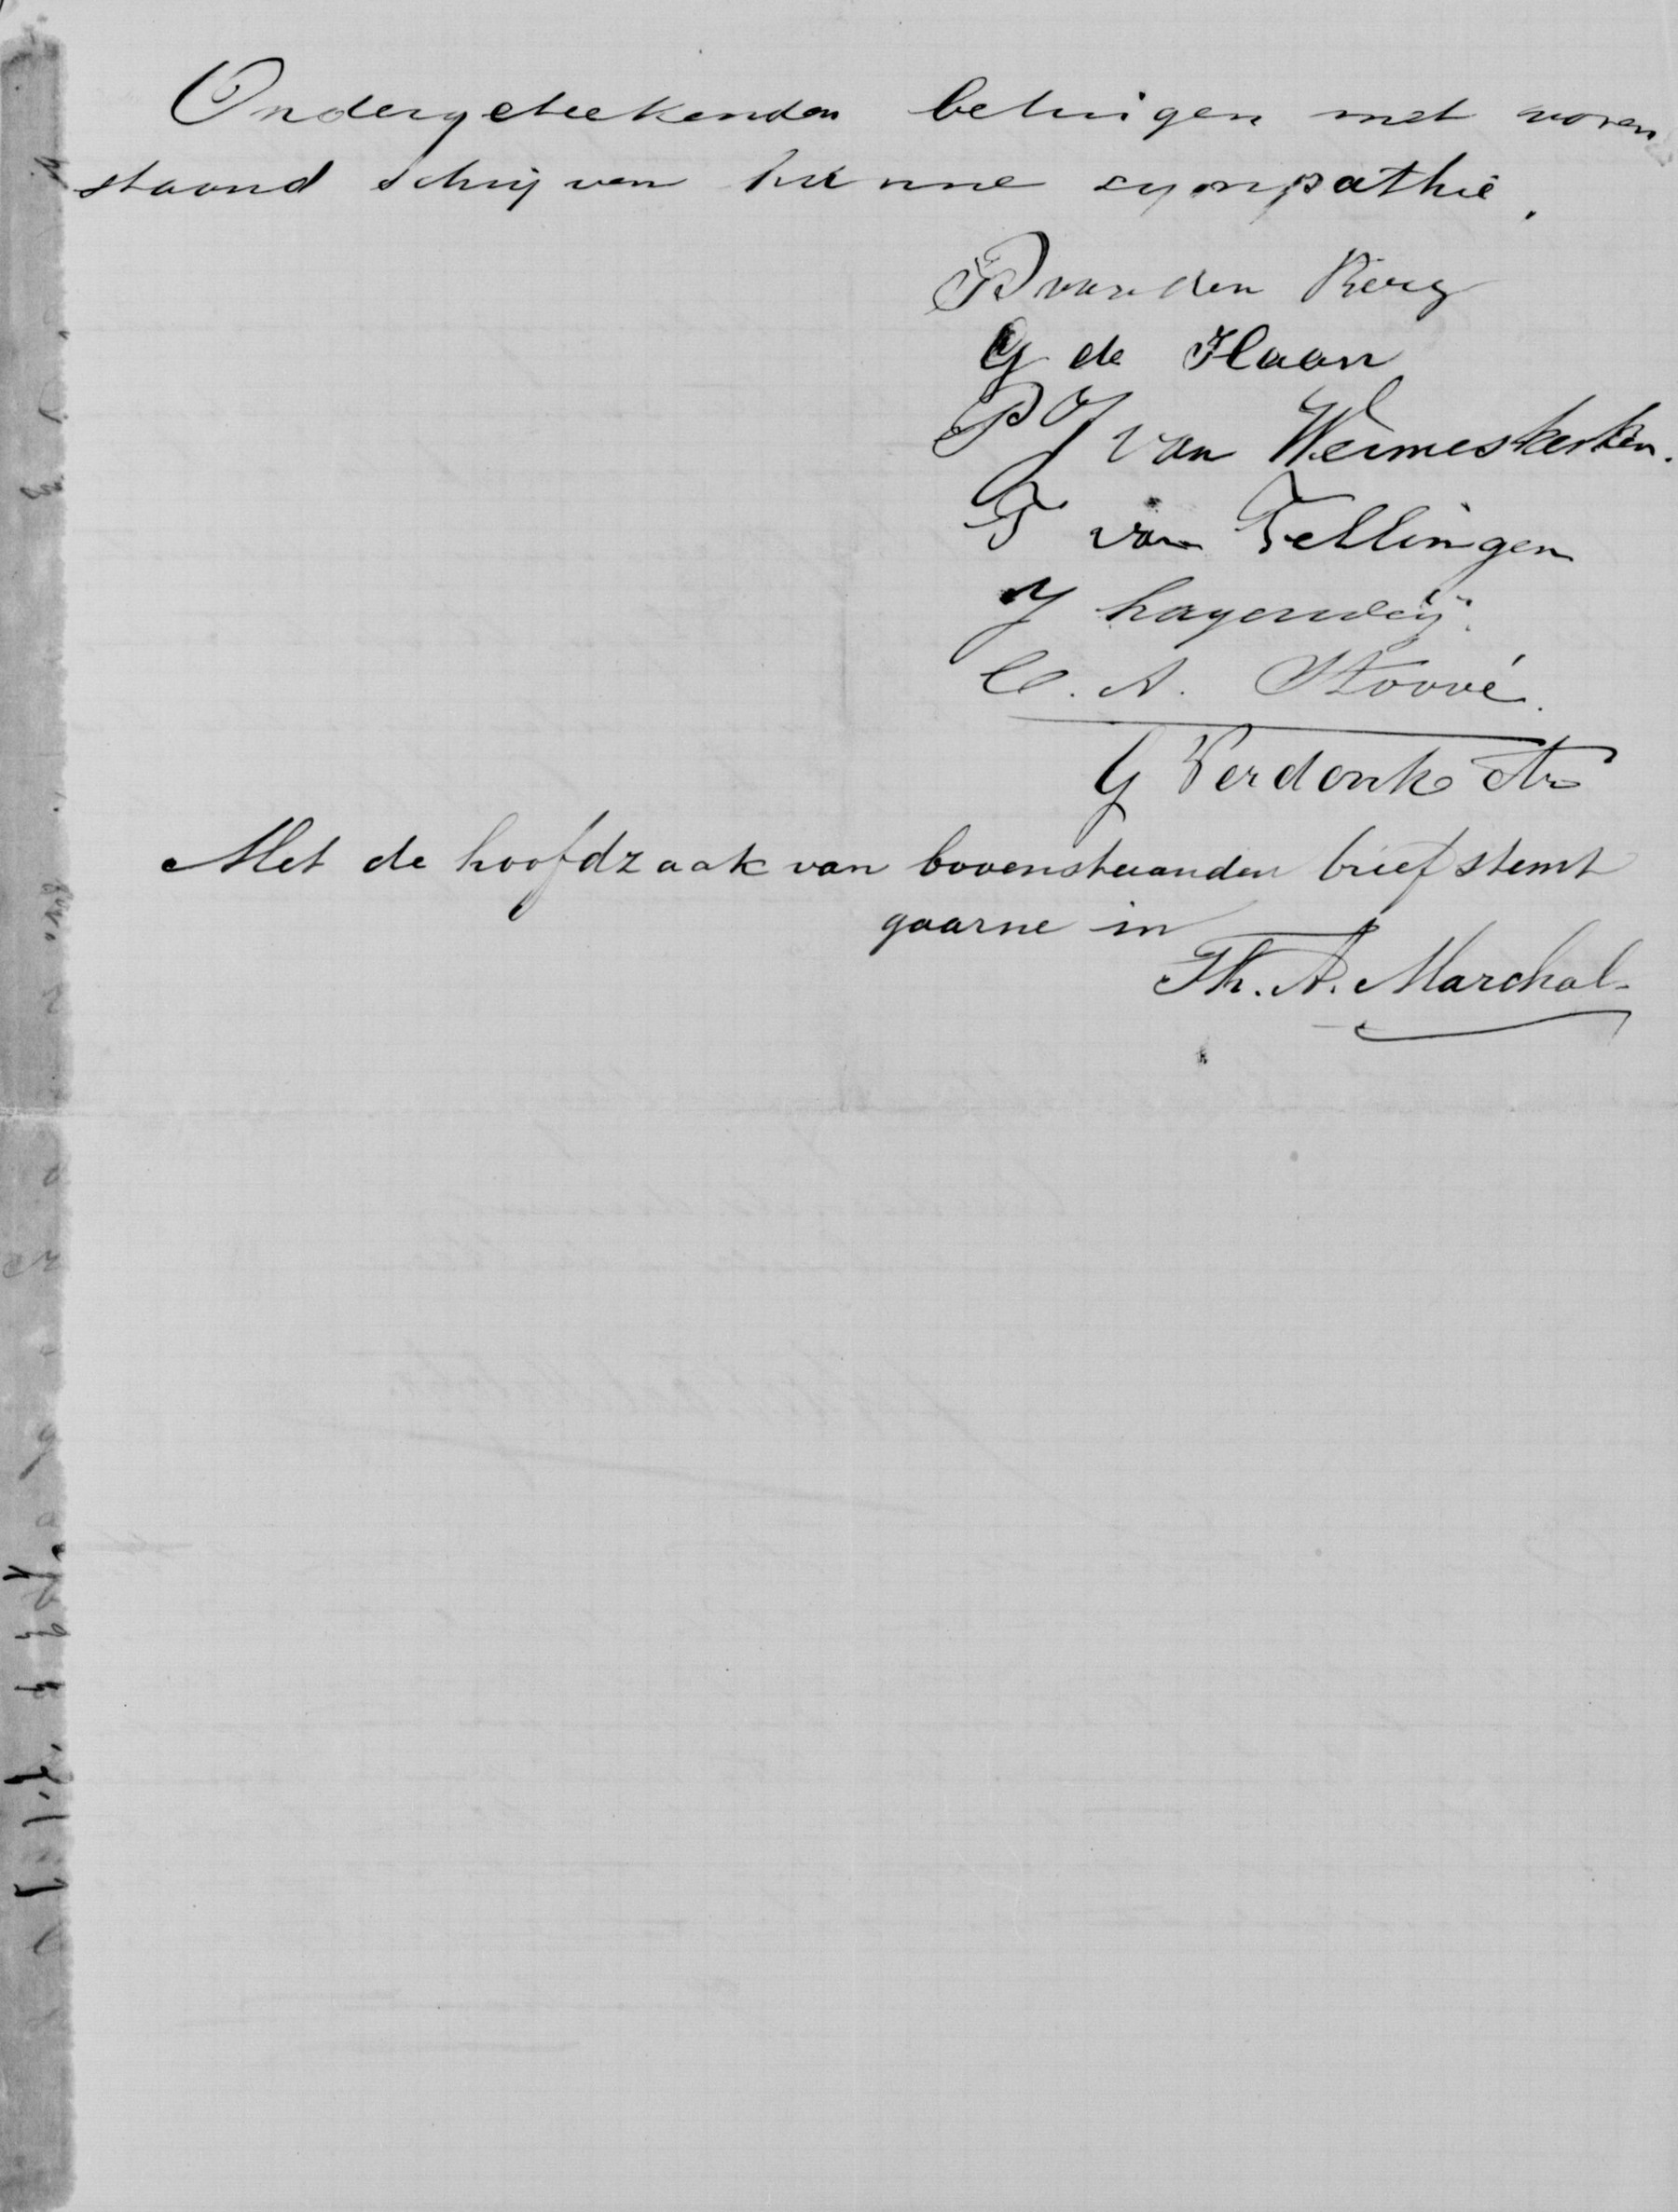 Ondergeteekenden betuigen met voren
staand schrijven hunne sympathie.
P van den Berg
G de Haan
P J van Wermeskerken.
T van Tellingen
J hagenweij.
C. A. Stoové.
G Verdonk Az
Met de hoofdzaak van bovenstaanden brief stemt
gaarne in
Th. A. Marchal